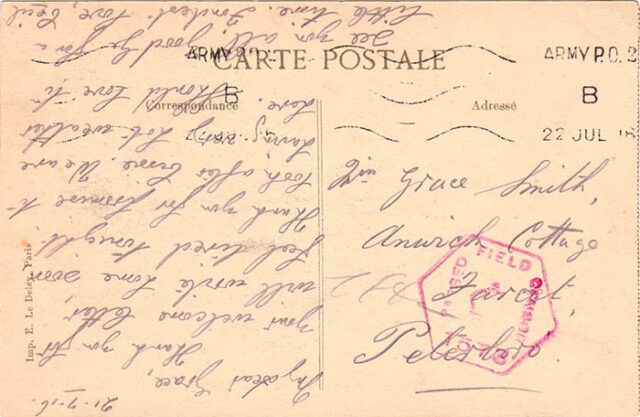 CARTE POSTALE
ARMY P.O. 2
B
22 JUL 16
ARMY P.O. 2
B
Correspondance
Adresse
Grace Smith,
Anwick Cottage
Farcet,
Peterboro'.
PASSED FIELD CENSOR
Imp. E. Le Deley, Paris
21-7-16.
My dear Grace,
Thank you for
your welcome letter,
will write some soon
feel tired tonight.
Thank you for promise to
look after Ernie. We are
having hot weather
here. Should love to
see you all, good bye for a
little time. Fondest love, Cecil